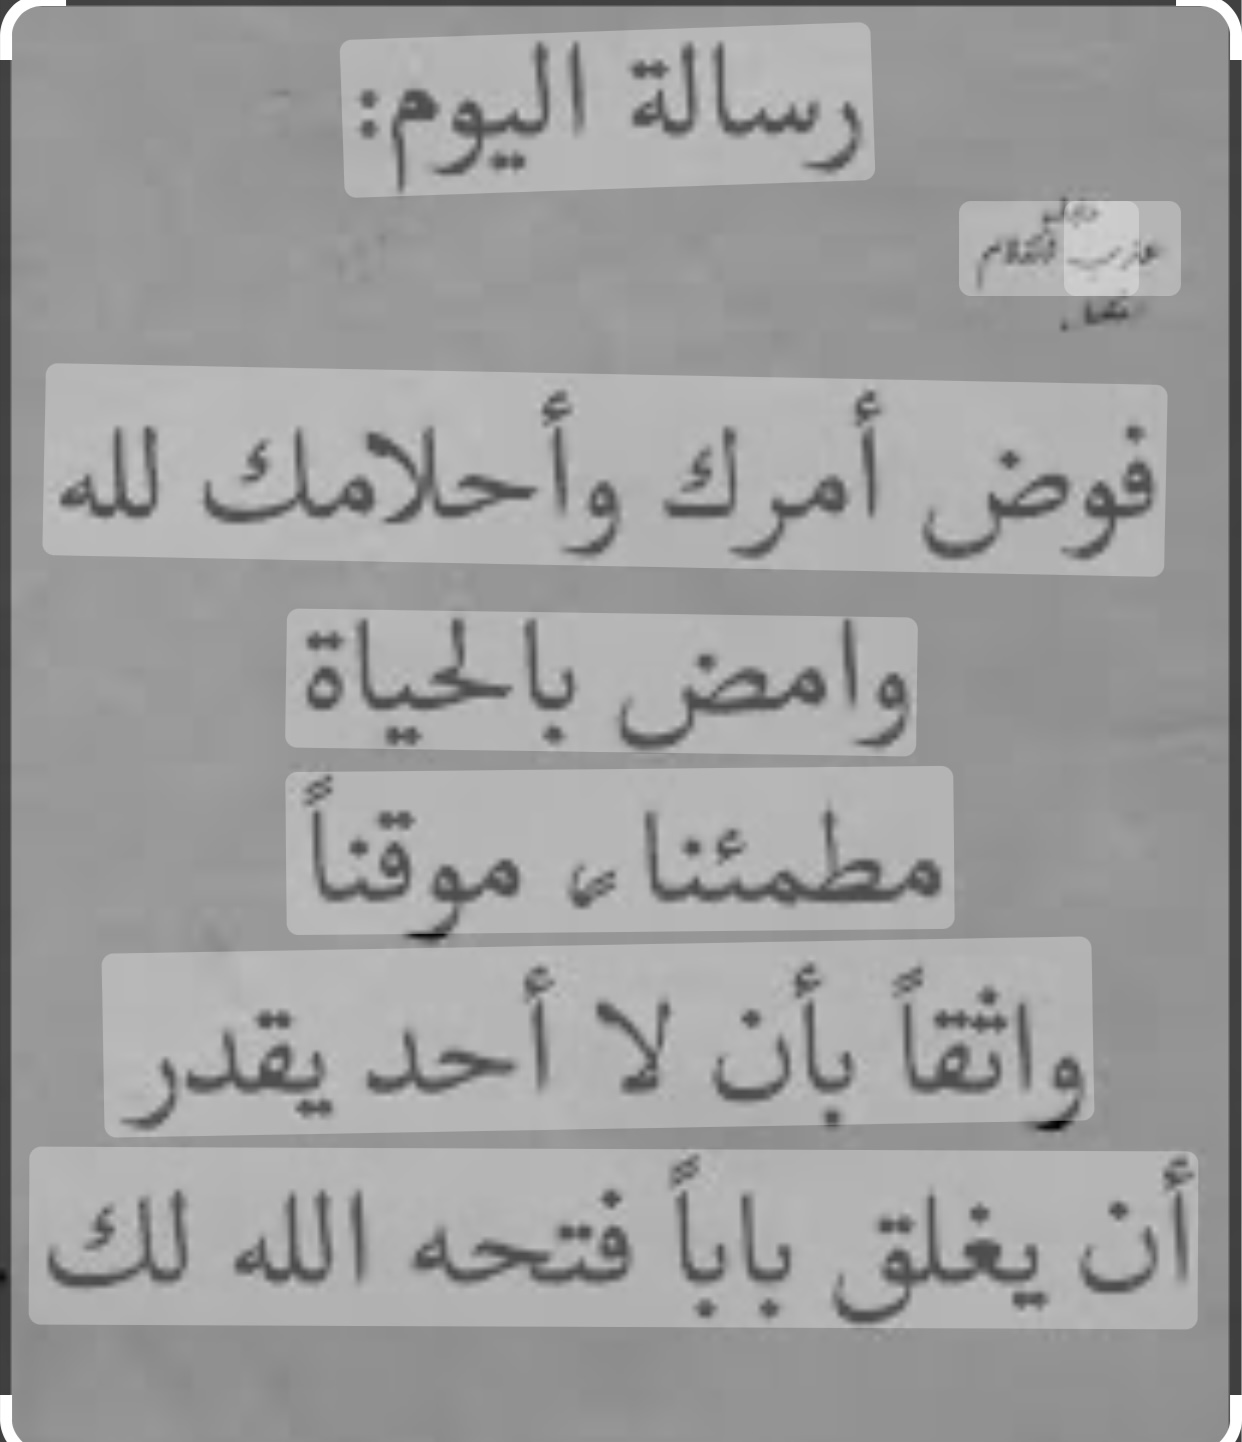 رسالة اليوم:
فوض أمرك وأحلامك لله
وامض بالحياة
مطمئنا ، موقناً
واثقاً بأن لا أحد يقدر
أن يغلق باباً فتحه الله لك